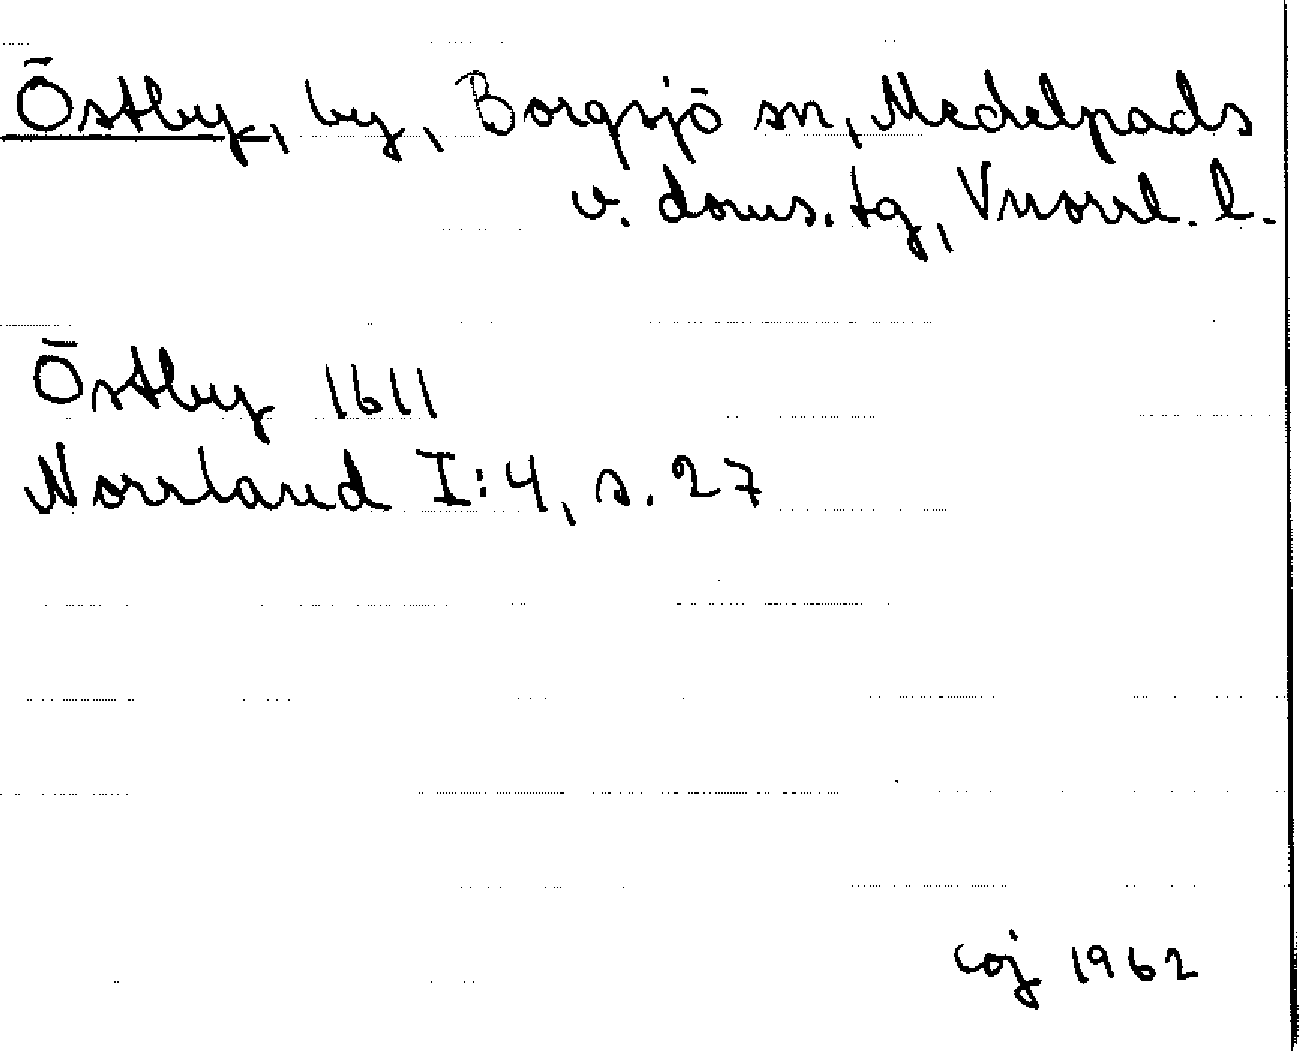 Östby, by, Borgsjö sn, Medelpads
v. doms. tg, Vnorrl. l.
Östby 1611
Norrland I:4, s. 27
coj 1962